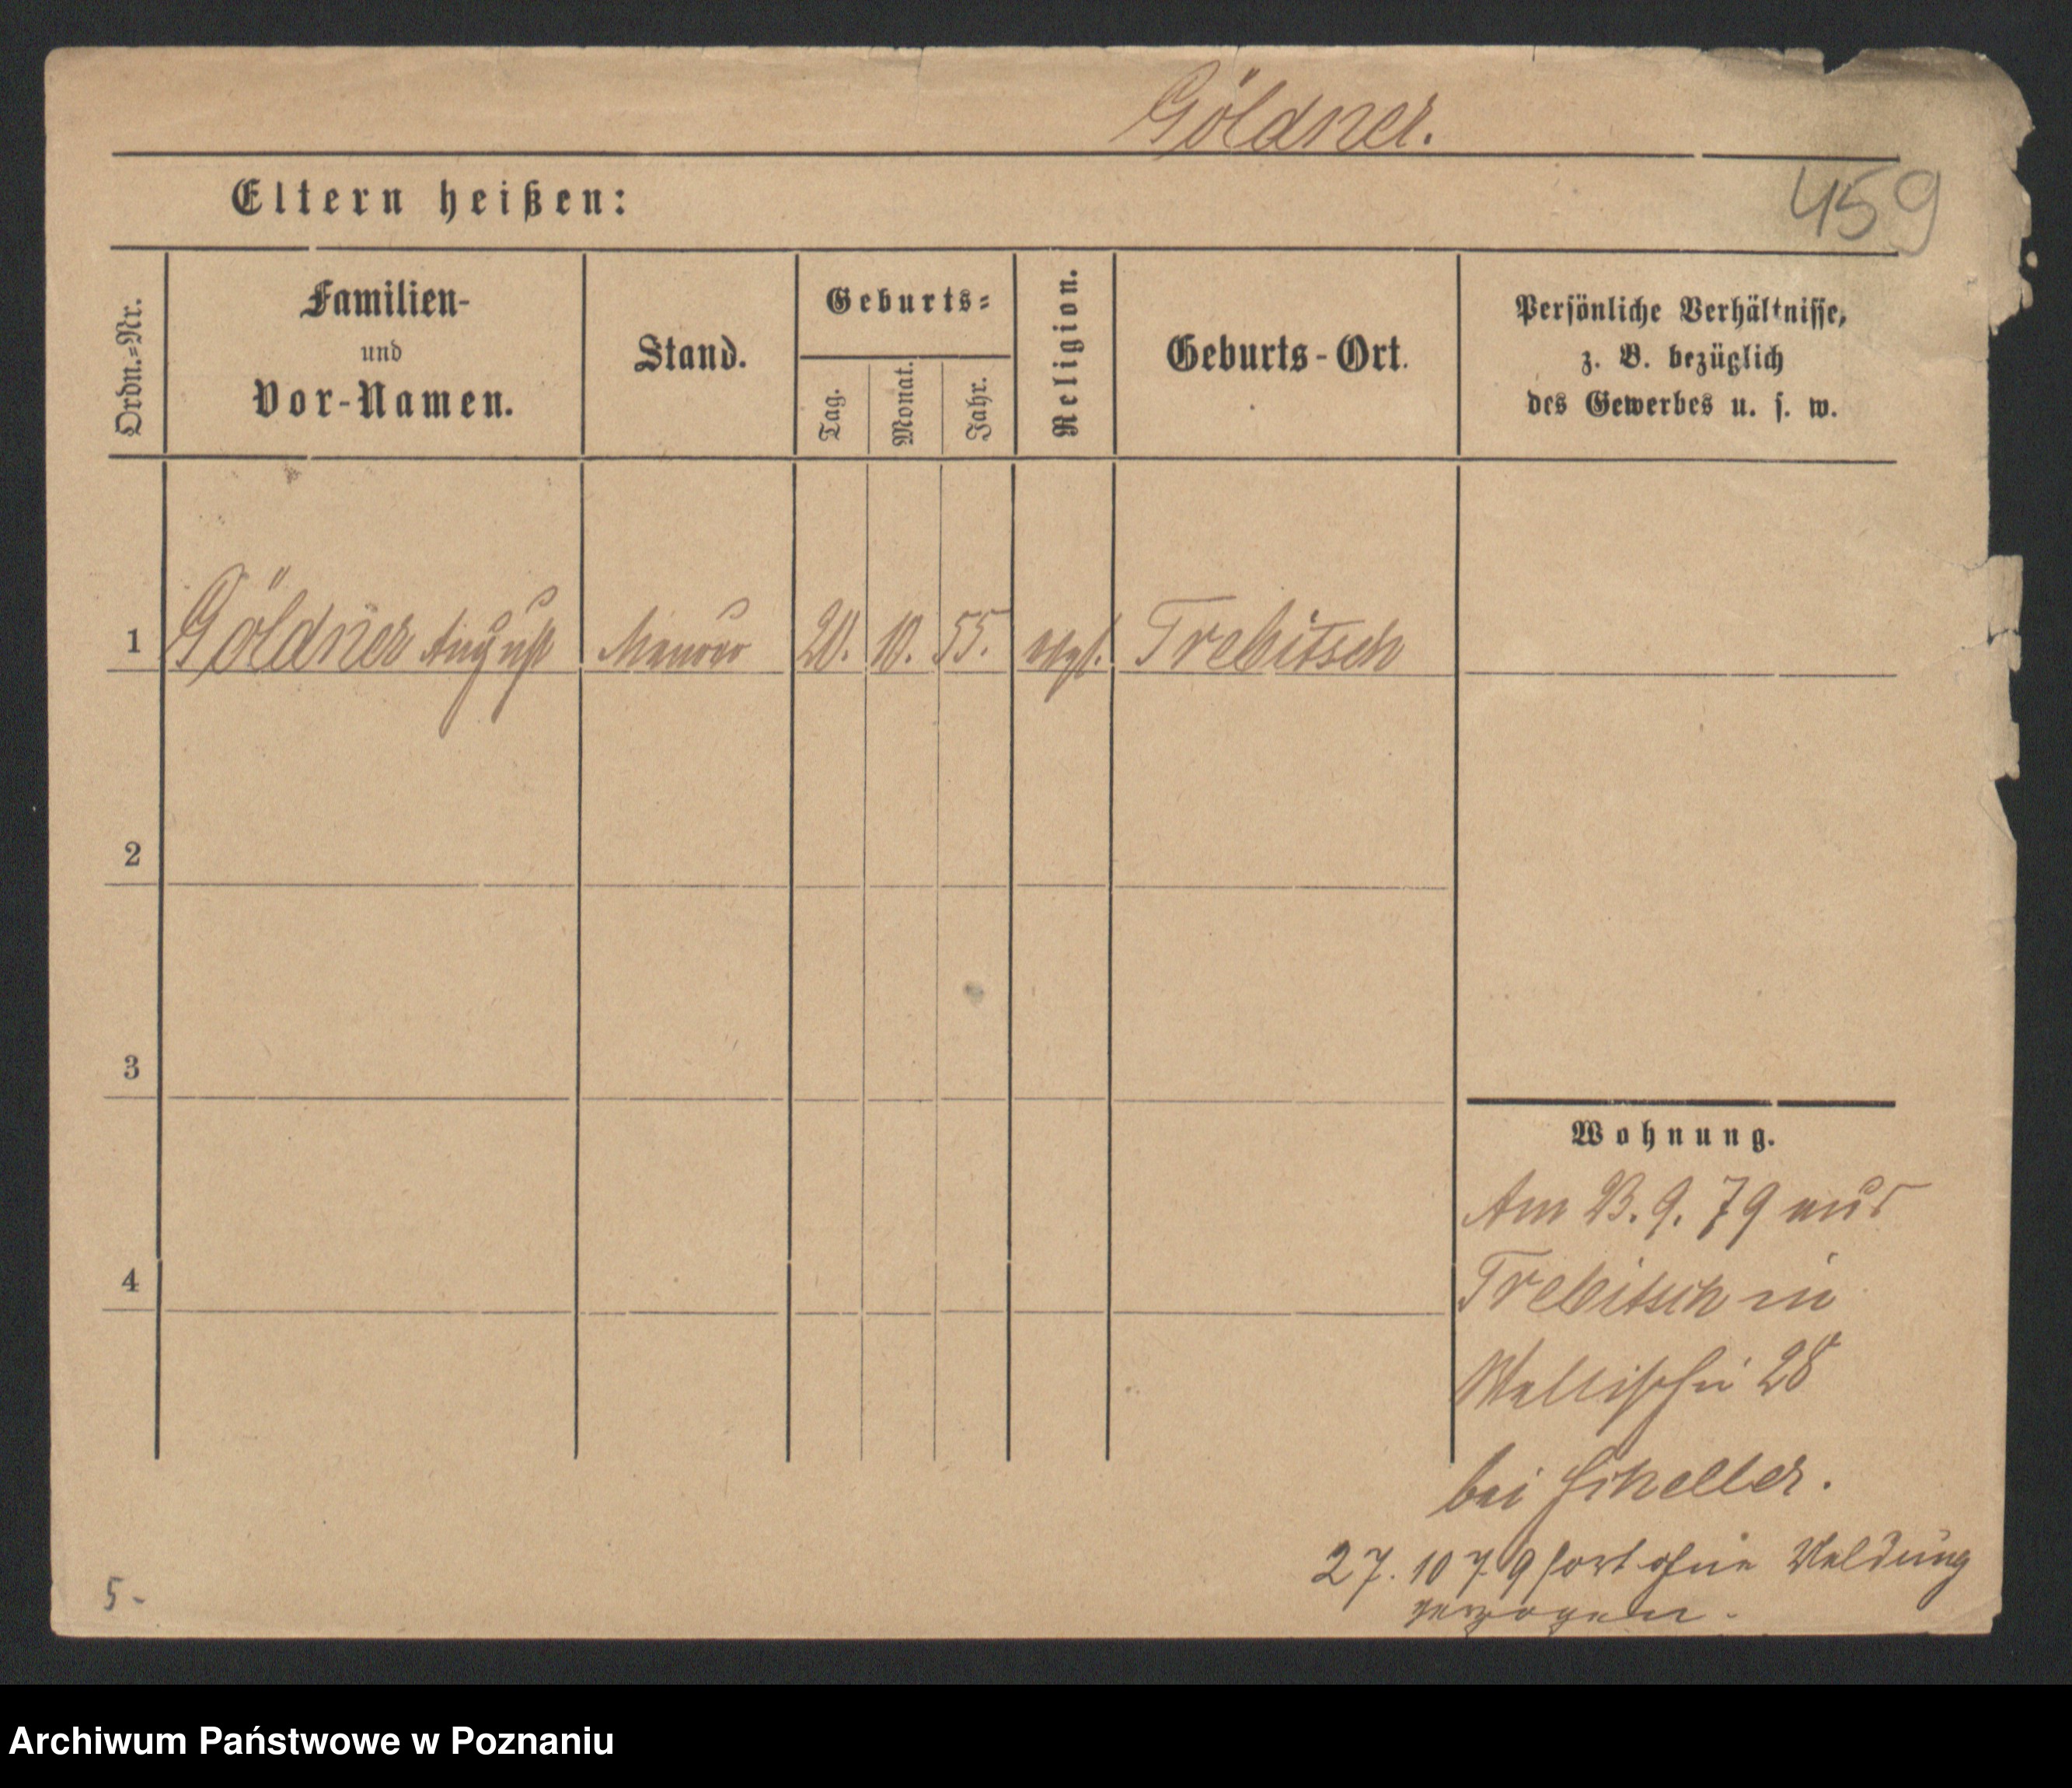 Göldner.
459
Eltern heißen:
Ordn.-Nr.
Familien-
und
Vor-Namen.
Stand.
Geburts-
Tag.
Monat.
Jahr.
Religion.
Geburts-Ort.
Persönliche Verhältnisse,
z. B. bezüglich
des Gewerbes u. s. w.
1 Göldner August Maurer 20. 10. 55. Trebitsch
2
3
4
Wohnung.
Am 23. 9. 79 aus
Trebitsch in
Wallischei 28
bei Scheller.
27. 10 79 fort ohne Meldung
gezogen.
5-
Archiwum Państwowe w Poznaniu